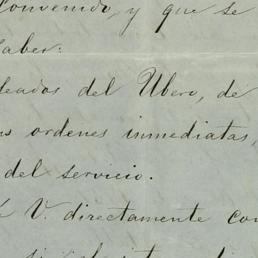 Convenido, y que se
saber:
leados del Ubero, de
us ordenes inmediatas,
del servicio.
á V. directamente con